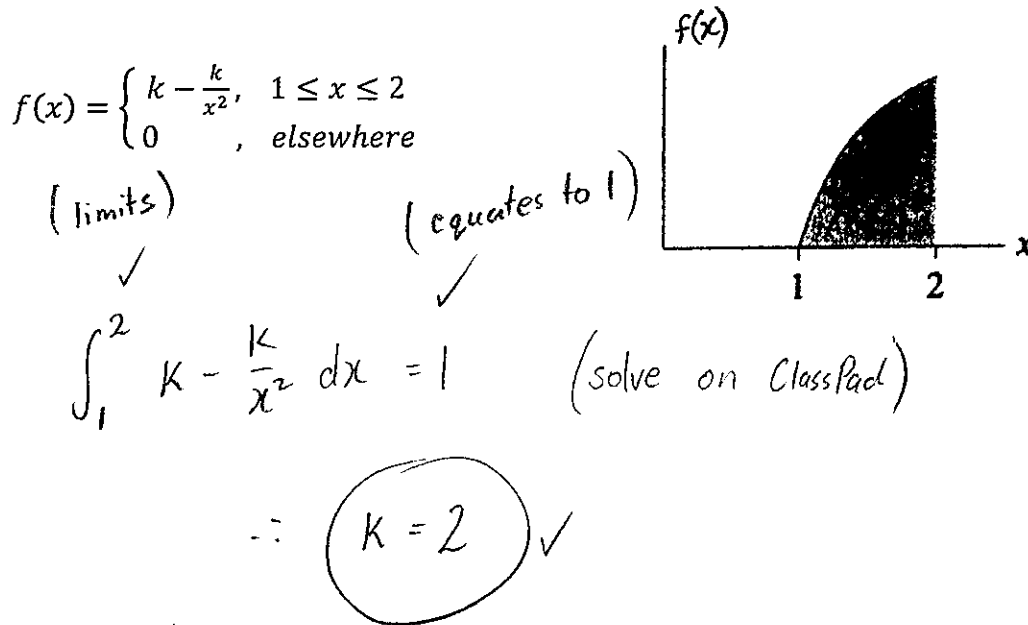 f(x)
f(x) = { k − k/x², 1 ≤ x ≤ 2
0 , elsewhere
x
1 2
(limits) (equates to 1)
✓ ✓
∫₁² K − K/x² dx = 1 (solve on ClassPad)
∴ K = 2 ✓